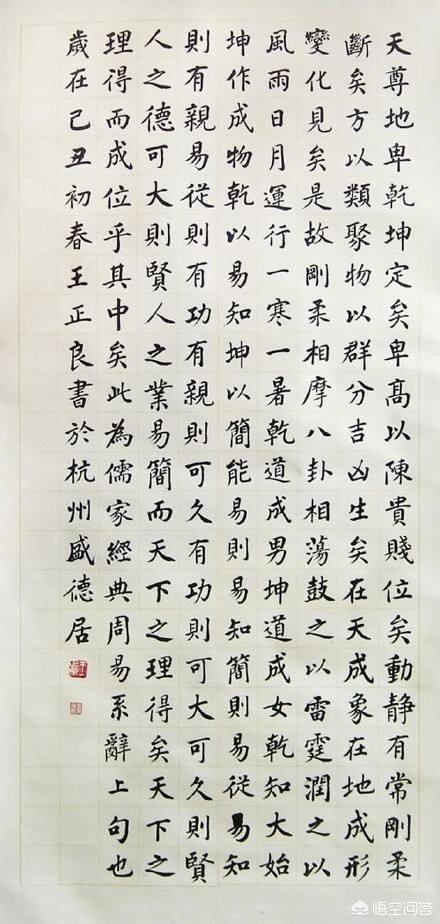 天尊地卑乾坤定矣卑高以陳貴賤位矣動靜有常剛柔
斷矣方以類聚物以群分吉凶生矣在天成象在地成形
變化見矣是故剛柔相摩八卦相蕩鼓之以雷霆潤之以
風雨日月運行一寒一暑乾道成男坤道成女乾知大始
坤作成物乾以易知坤以簡能易則易知簡則易從易知
則有親易從則有功有親則可久有功則可大可久則賢
人之德可大則賢人之業易簡而天下之理得矣天下之
理得而成位乎其中矣此為儒家經典周易系辭上句也
歲在己丑初春王正良書於杭州盛德居
悟空问答